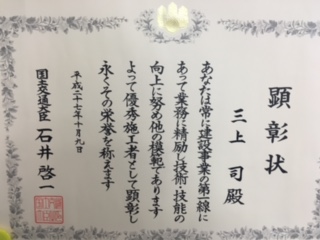 顕彰状
三上 司 殿
あなたは常に建設事業の第一線に
あって業務に精励し技術・技能の
向上に努め他の模範であります
よって優秀施工者として顕彰し
永くその栄誉を称えます
平成二十七年十月九日
国土交通大臣 石井啓一